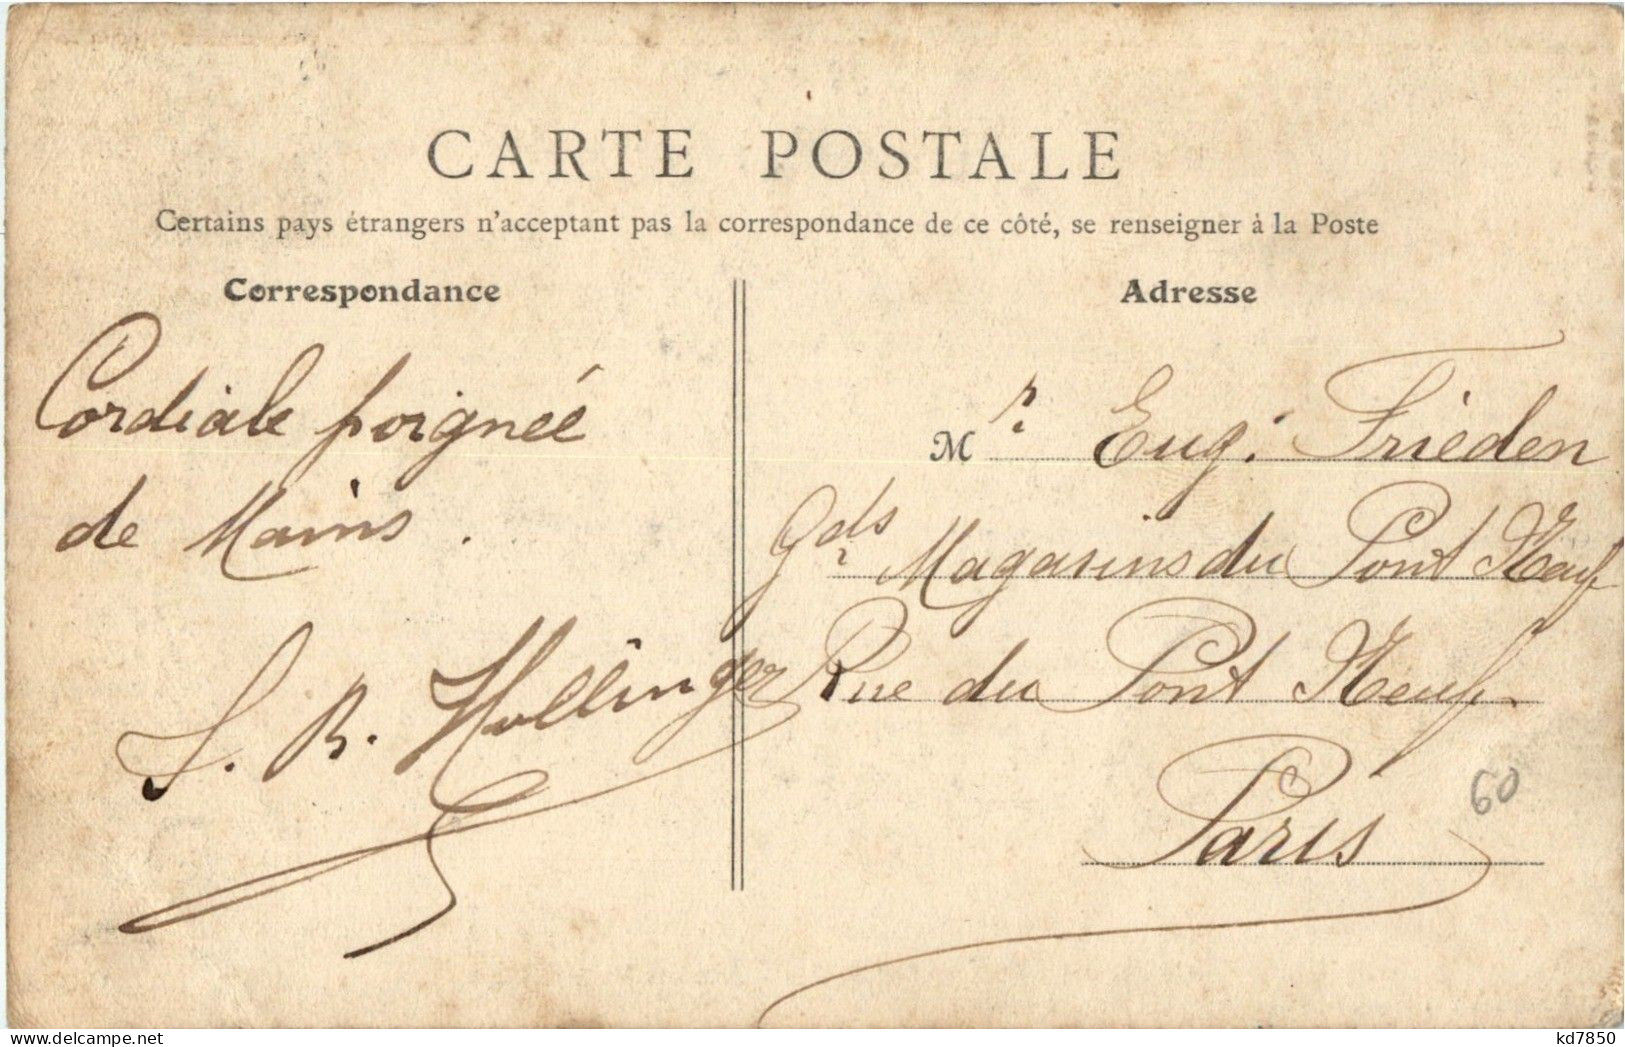 CARTE POSTALE
Certains pays étrangers n'acceptant pas la correspondance de ce côté, se renseigner à la Poste
Correspondance
Cordiale poignée
de Mains.
B. Hollinger
Adresse
Mr Eug. Frieden
Gds Magasins du Pont Neuf
Rue du Pont Neuf.
Paris
60
kd7850